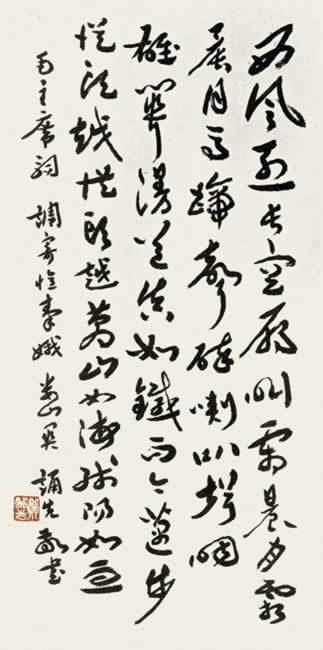 西風烈長空雁叫霜晨月霜
晨月馬蹄聲碎喇叭聲咽
雄關漫道真如鐵而今邁步
從頭越從頭越蒼山如海殘陽如血
毛主席詞 調寄憶秦娥 娄山关 誦先敬書